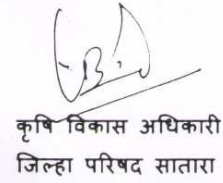 कृषि विकास अधिकारी
जिल्हा परिषद सातारा